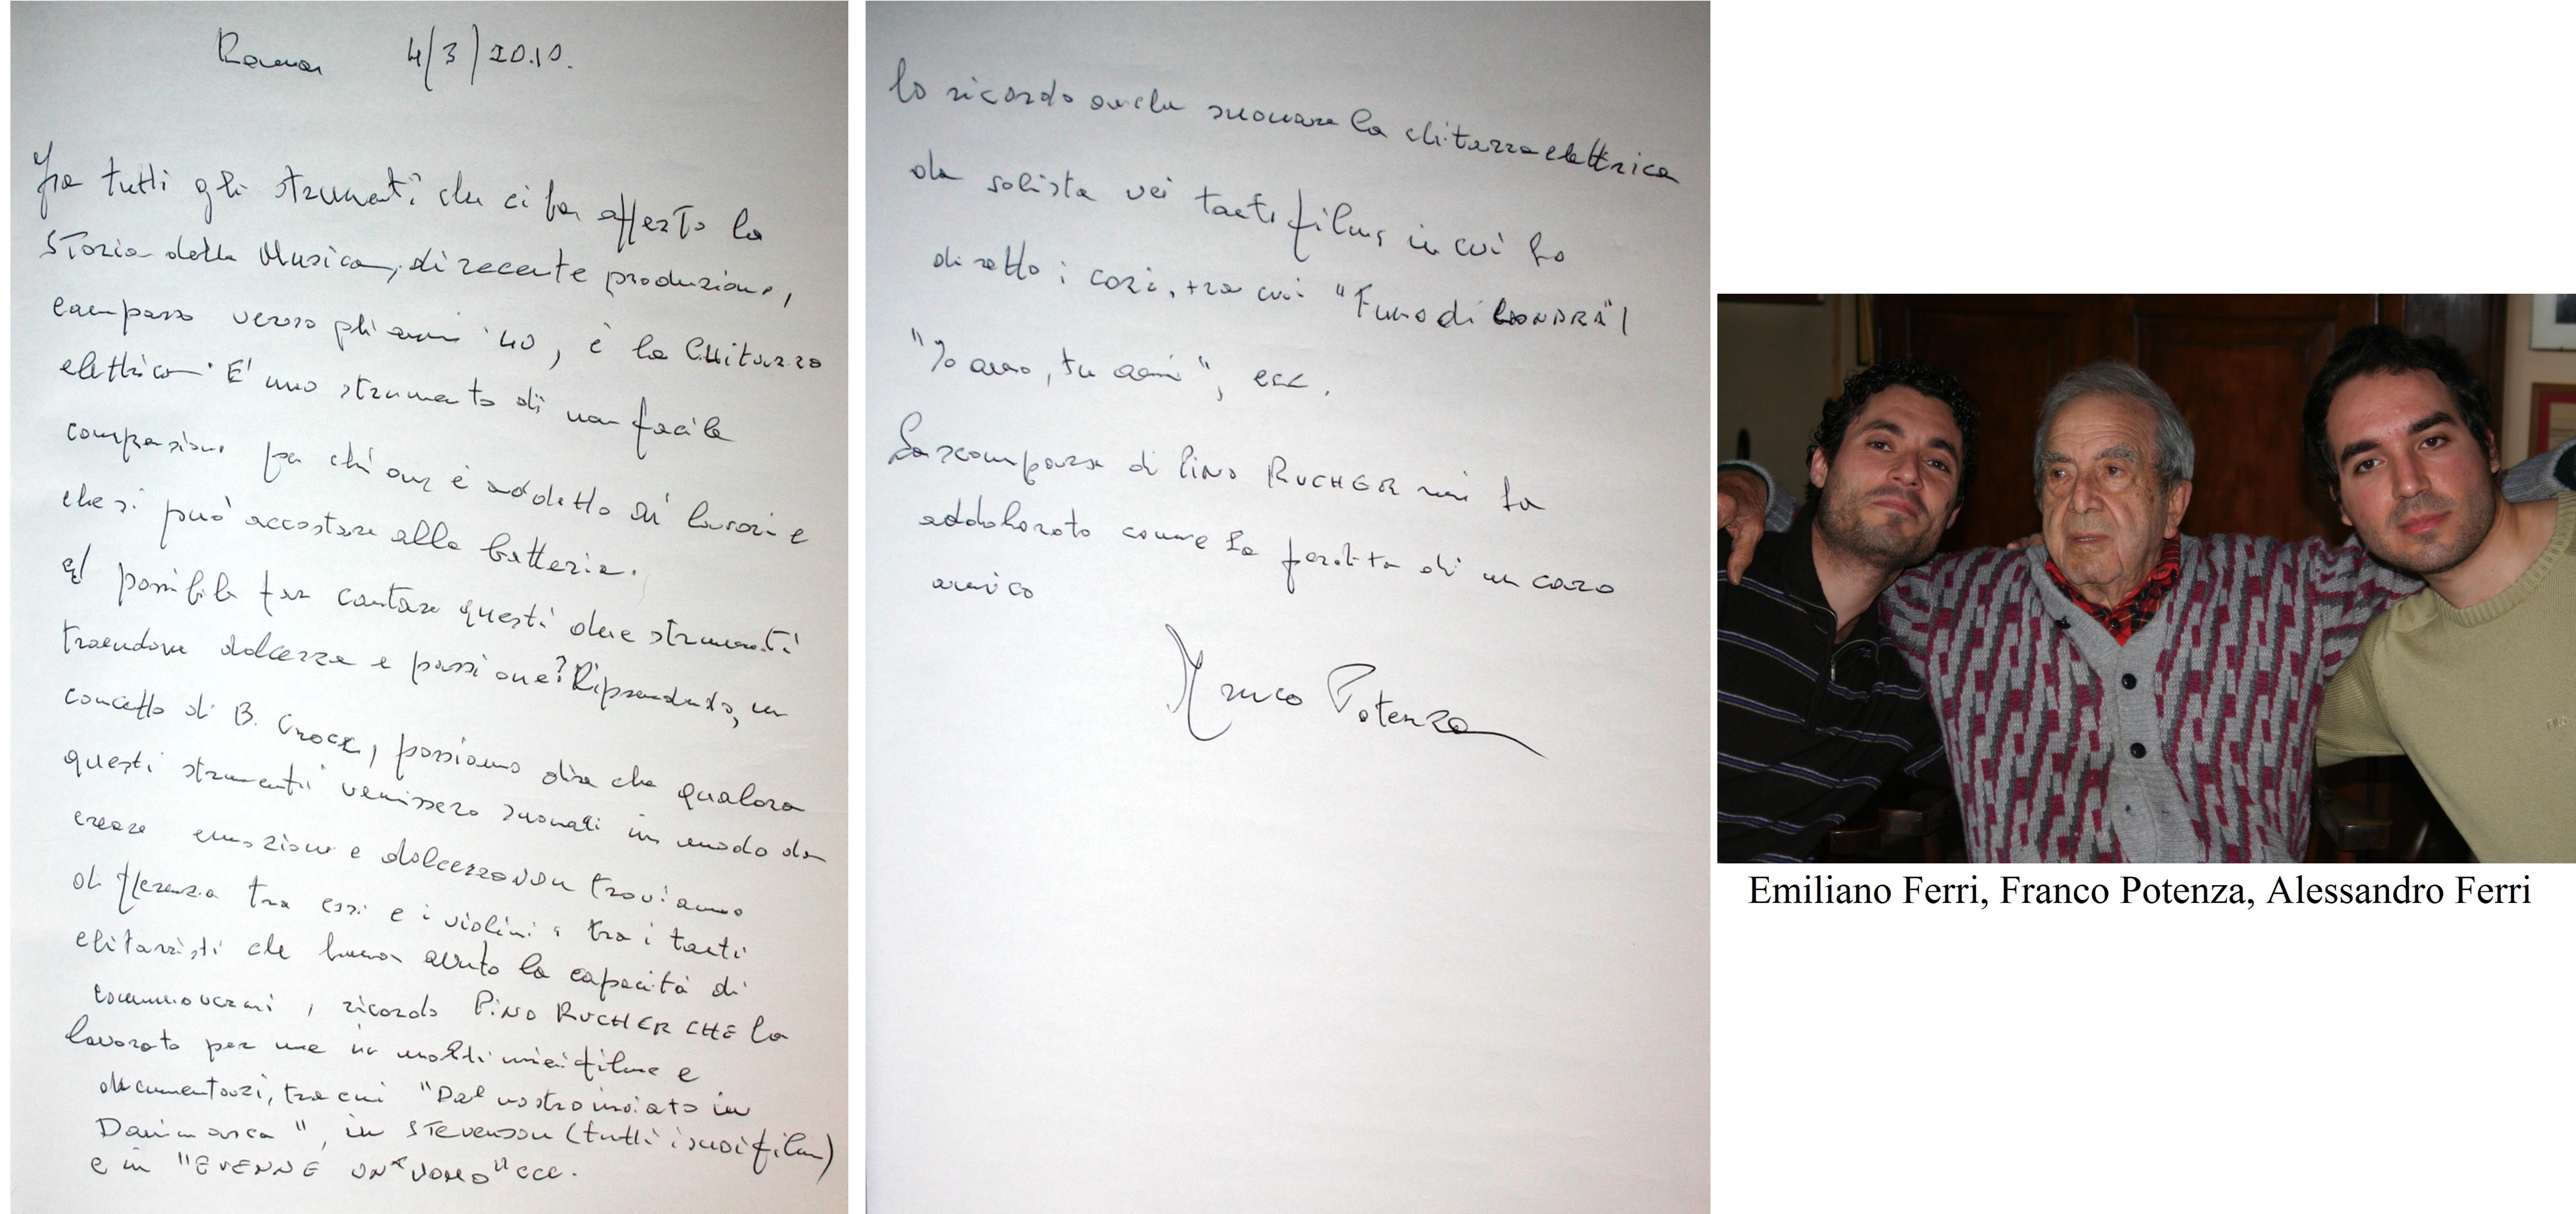 Roma 4/3/2010.
Fra tutti gli strumenti che ci ha offerto la
Storia della Musica, di recente produzione,
comparso verso gli anni '40, è la Chitarra
elettrica. E' uno strumento di non facile
comprensione per chi non è addetto ai lavori e
che si può accostare alla batteria.
E' possibile far cantare questi due strumenti
traendone dolcezza e passione? Riprendendo, un
concetto di B. Croce, possiamo dire che qualora
questi strumenti venissero suonati in modo da
creare emozione e dolcezza non troviamo
differenza tra essi e i violini; tra i tanti
chitarristi che hanno avuto la capacità di
commuovermi, ricordo PINO RUCHER CHE ha
lavorato per me in molti miei films e
documentari, tra cui "Dal nostro inviato in
Danimarca", in STevenson (tutti i suoi film)
e in "E VENNE UN UOMO" ecc.
Lo ricordo anche suonare la chitarra elettrica
da solista nei tanti films in cui ho
diretto i cori, tra cui "Fumo di LONDRA",
"Io amo, tu ami", ecc.
La scomparsa di PINO RUCHER mi ha
addolorato come la perdita di un caro
amico
Franco Potenza
Emiliano Ferri, Franco Potenza, Alessandro Ferri